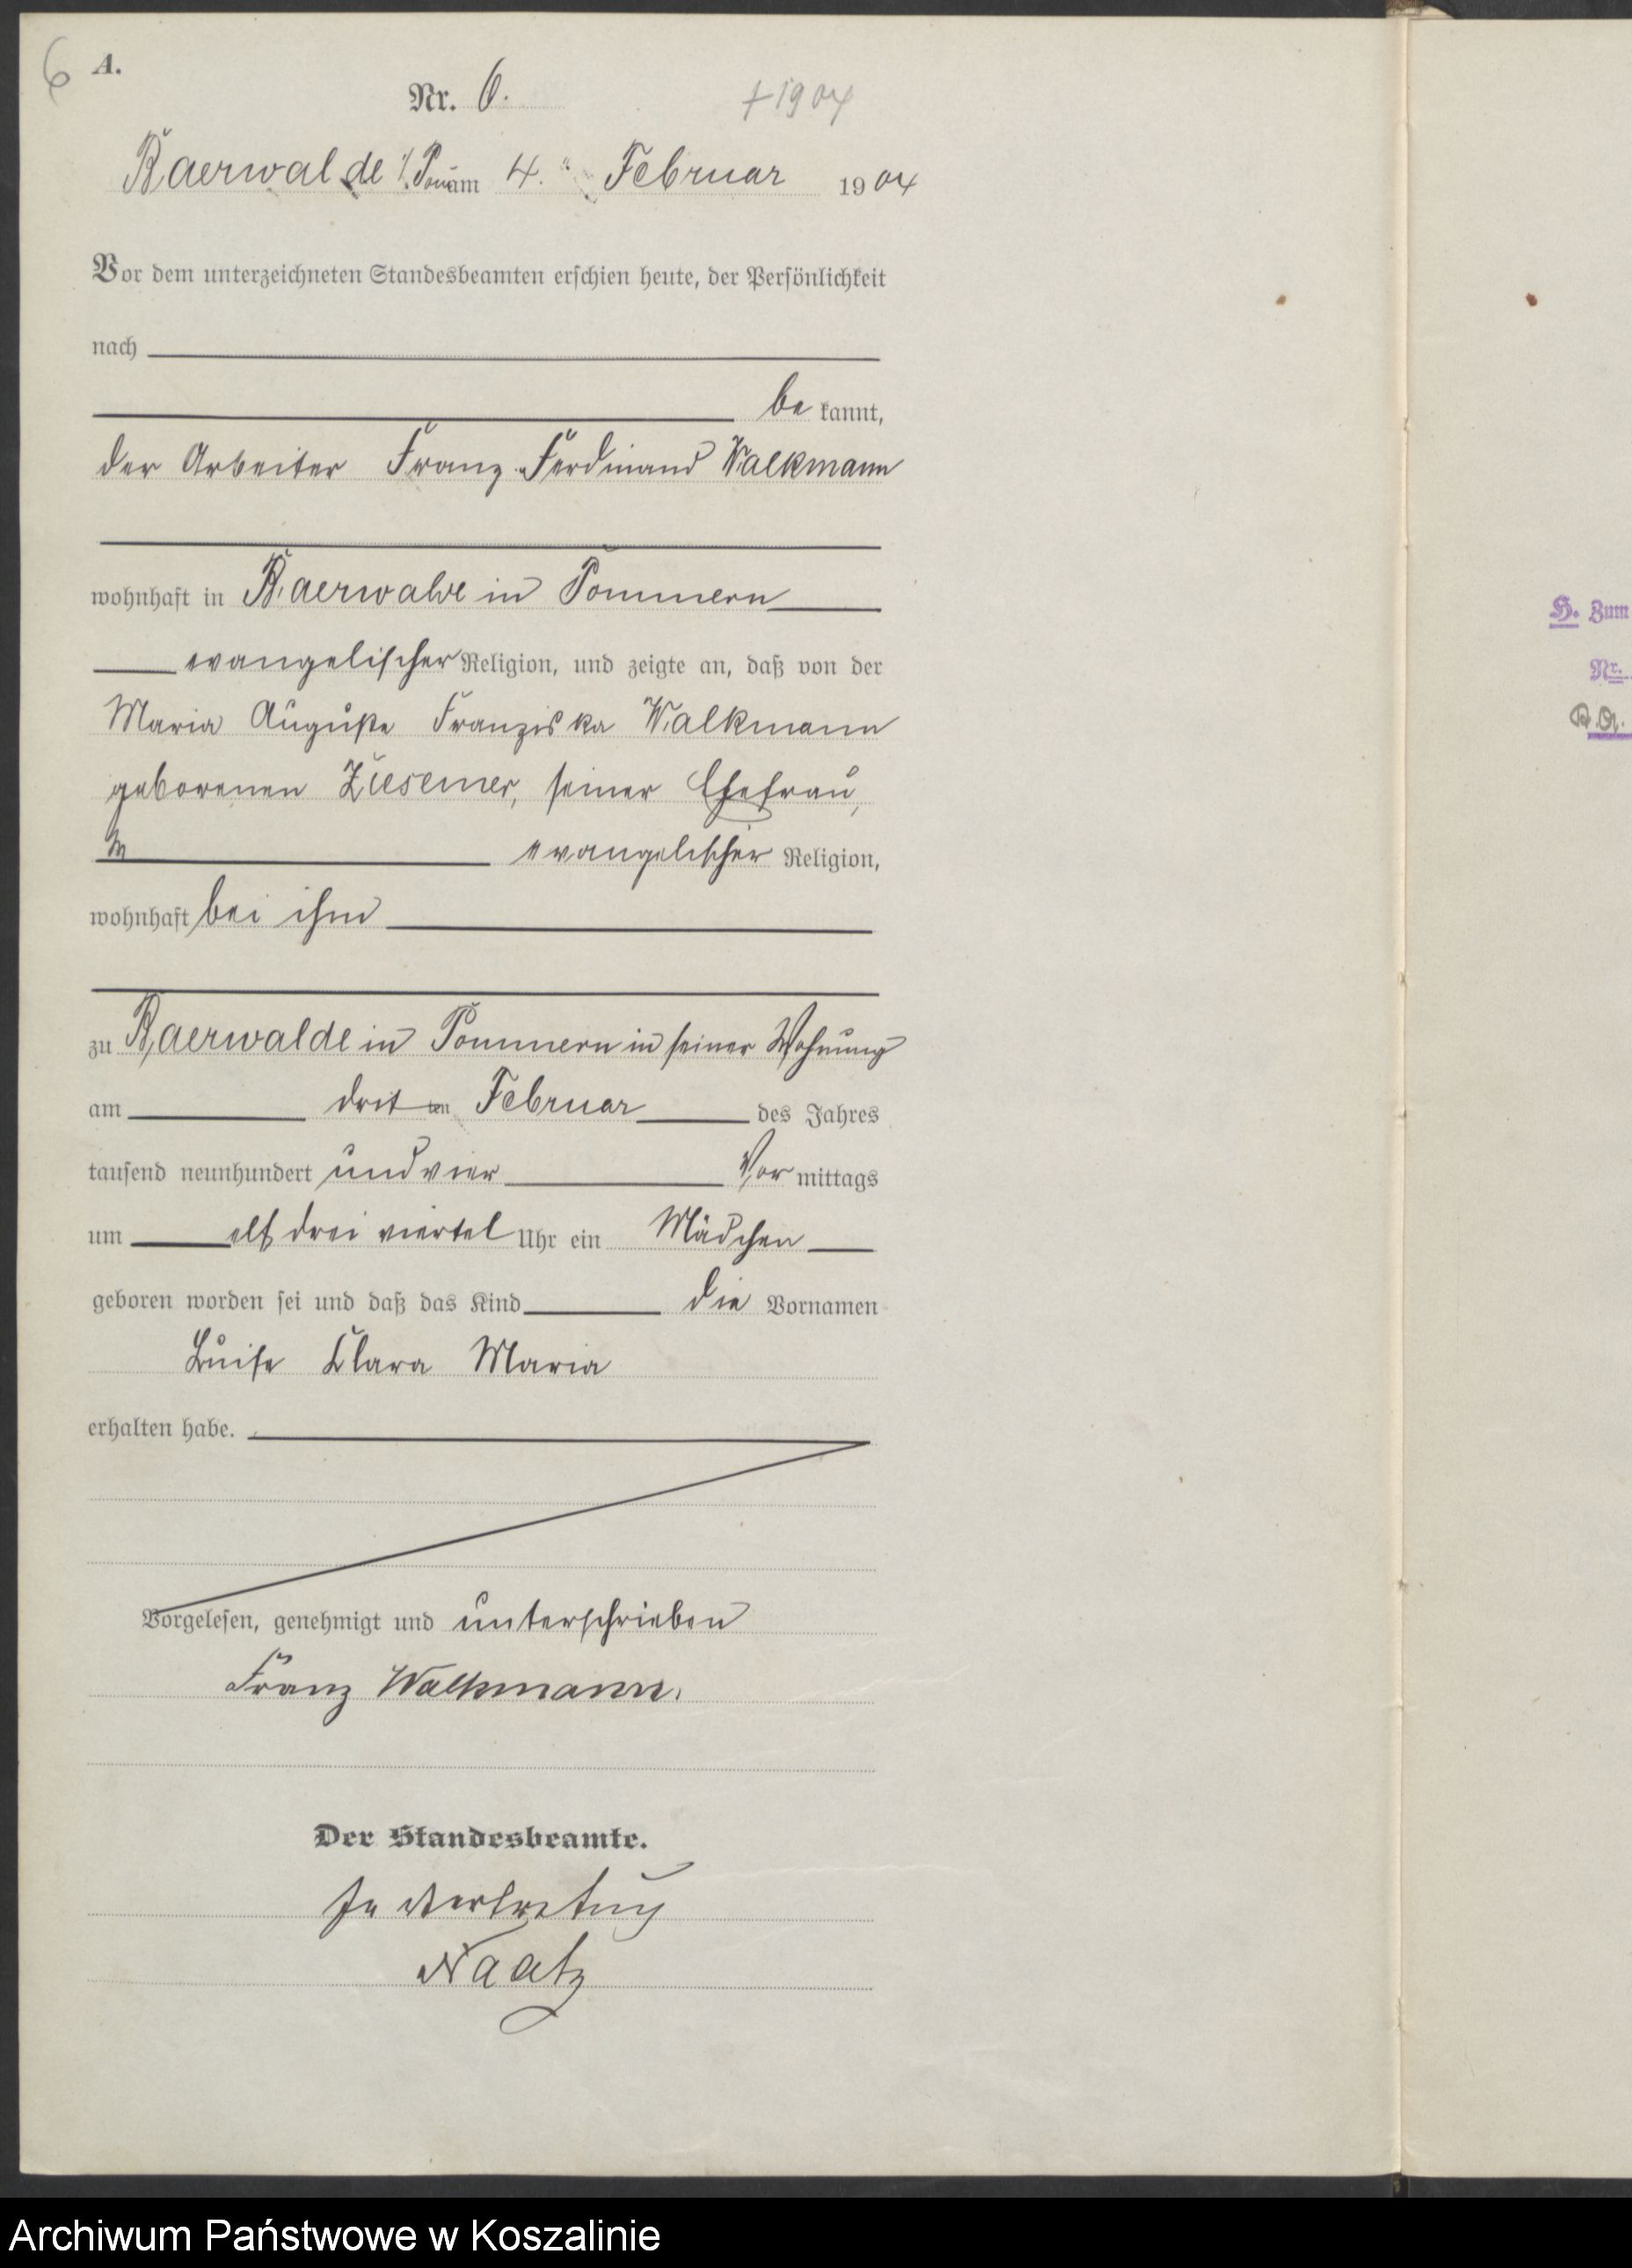 6
A.
Nr. 6.
+1904
Baerwalde i/Pom am 4. Februar 1904
Vor dem unterzeichneten Standesbeamten erschien heute, der Persönlichkeit
nach
be kannt,
der Arbeiter Franz Ferdinand Walkmann
wohnhaft in Baerwalde in Pommern
evangelischer Religion, und zeigte an, daß von der
Maria Auguste Franziska Walkmann
geborenen Ziesemer, seiner Ehefrau,
evangelischer Religion,
wohnhaft bei ihm
zu Baerwalde in Pommern in seiner Wohnung
am dritten Februar des Jahres
tausend neunhundert und vier Vor mittags
um elf drei viertel Uhr ein Mädchen
geboren worden sei und daß das Kind die Vornamen
Luise Clara Maria
erhalten habe.
Vorgelesen, genehmigt und unterschrieben
Franz Walkmann.
Der Standesbeamte.
In Vertretung
Naatz
H. Zum
Nr.
Archiwum Państwowe w Koszalinie